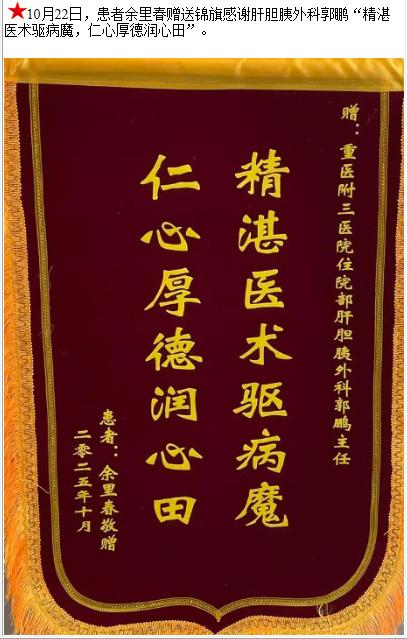 ★10月22日，患者余里春赠送锦旗感谢肝胆胰外科郭鹏“精湛
医术驱病魔，仁心厚德润心田”。
赠：重医附三医院住院部肝胆胰外科郭鹏主任
精湛医术驱病魔
仁心厚德润心田
患者：余里春敬赠
二零二五年十月